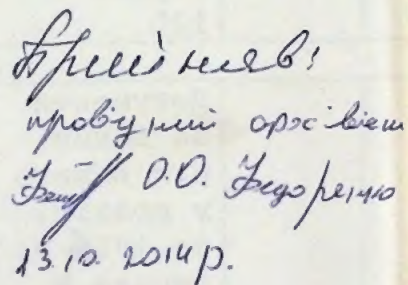 Прийняв:
провідний архівіст
О.О. Федоренко
13.10.2014р.